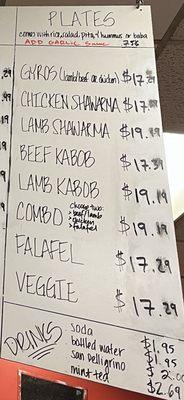 PLATES
comes with rice, salad, pita, & hummus or baba
ADD GARLIC SAUCE 75¢
GYROS (lamb/beef or chicken) $17.29
CHICKEN SHAWARMA $17.29
LAMB SHAWARMA $19.19
BEEF KABOB $17.39
LAMB KABOB $19.19
COMBO choose two: $19.19
> beef/lamb
> chicken
> falafel
FALAFEL $17.29
VEGGIE $17.29
DRINKS
soda $1.95
bottled water $1.95
san pellegrino
mint tea $2.69